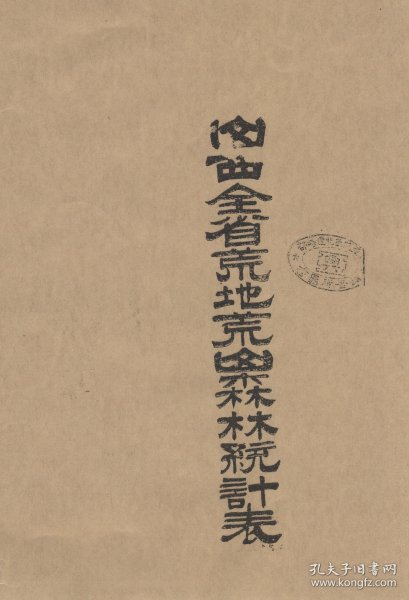 山西全省荒地荒山森林統計表
孔夫子旧书网
www.kongfz.com